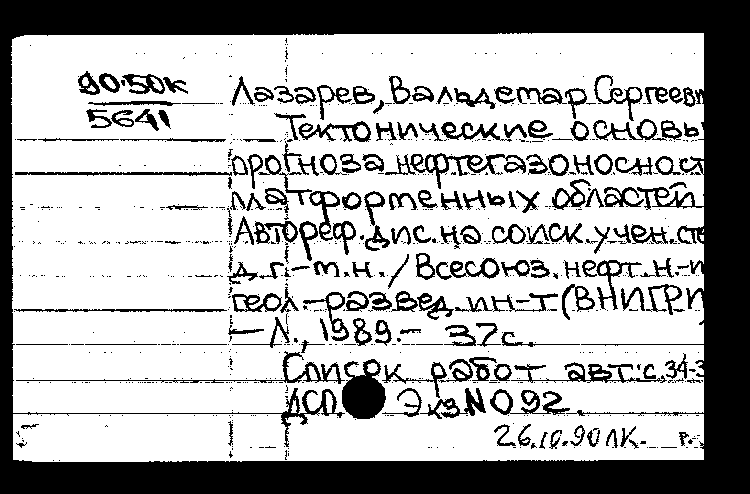 90-50к
5641
Лазарев, Вальдемар Сергеевич
Тектонические основы
прогноза нефтегазоносност
платформенных областей
Автореф. дис. на соиск. учен. сте
д. г.-м.н. / Всесоюз. нефт. н.-и
геол.-развед. ин-т (ВНИГРИ)
— Л., 1989.- 37с.
Список работ авт.: с.34-3
ДСП. Экз.№092.
26.10.90 ЛК. р.